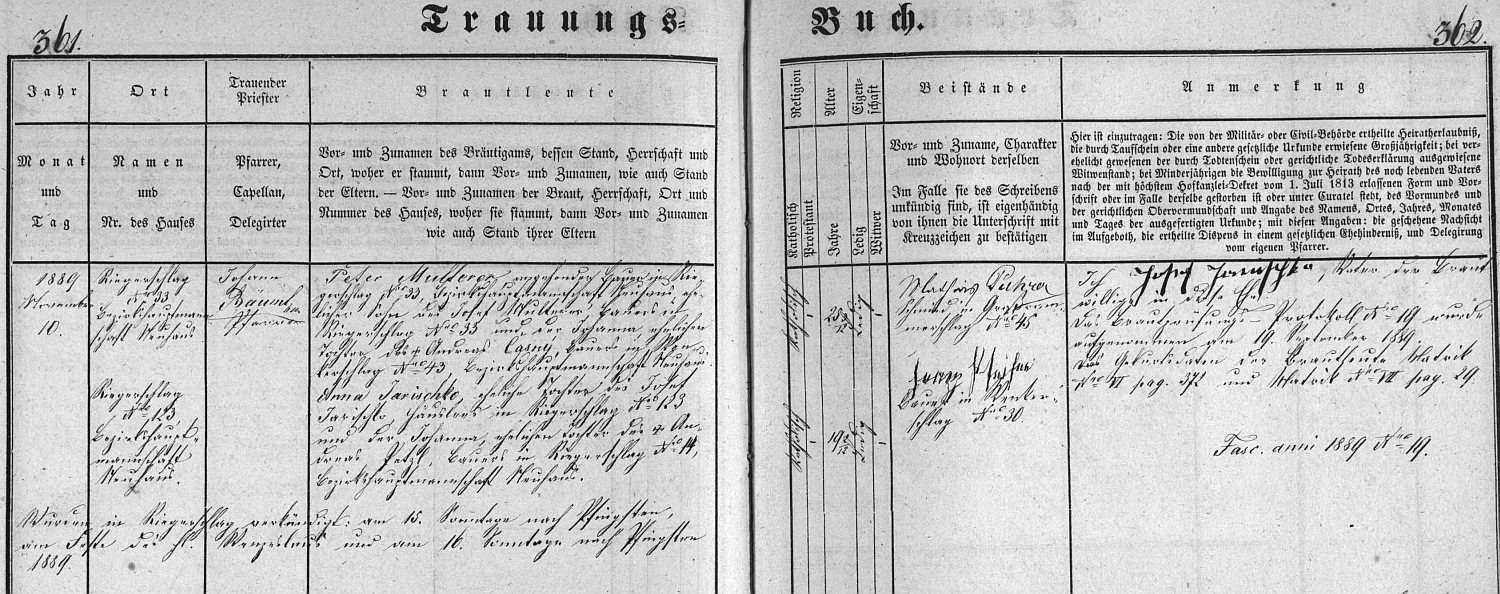 361.
Trauungs=
Buch.
362.
Jahr
Monat
und
Tag
Ort
Namen
und
Nr. des Hauses
Trauender
Priester
Pfarrer,
Capellan,
Delegirter
Brautleute
Vor- und Zunamen des Bräutigams, dessen Stand, Herrschaft und
Ort, woher er stammt, dann Vor- und Zunamen, wie auch Stand
der Eltern. — Vor- und Zunamen der Braut, Herrschaft, Ort und
Nummer des Hauses, woher sie stammt, dann Vor- und Zunamen
wie auch Stand ihrer Eltern
Religion
Katholisch
Protestant
Alter
Jahre
Eigen-
schaft
Ledig
Witwer
Beistände
Vor- und Zuname, Charakter
und Wohnort derselben
Im Falle sie des Schreibens
unkündig sind, ist eigenhändig
von ihnen die Unterschrift mit
Kreuzzeichen zu bestätigen
Anmerkung
Hier ist einzutragen: Die von der Militär- oder Civil-Behörde ertheilte Heiratherlaubniß,
die durch Taufschein oder eine andere gesetzliche Urkunde erwiesene Großjährigkeit; bei ver-
ehelicht gewesenen der durch Todtenschein oder gerichtliche Todeserklärung ausgewiesene
Witwenstand; bei Minderjährigen die Bewilligung zur Heirath des noch lebenden Vaters
nach der mit höchstem Hofkanzlei-Dekret vom 1. Juli 1813 erlassenen Form und Vor-
schrift oder im Falle derselbe gestorben ist oder unter Curatel steht, des Vormundes und
der gerichtlichen Obervormundschaft und Angabe des Namens, Ortes, Jahres, Monates
und Tages der ausgefertigten Urkunde; mit diesen Angaben: die geschehene Nachsicht
im Aufgeboth, die ertheilte Dispens in einem gesetzlichen Ehehinderniß, und Delegirung
vom eigenen Pfarrer.
1889
November
10.
Riegerschlag
Nro 33
Bezirkshauptmann
schaft Neuhaus
Riegerschlag
Nro 123
Bezirkshaupt-
mannschaft
Neuhaus.
Johann
Bäuml
Pfarrer
Peter Mulleren angehender Bauer in Rie-
gerschlag Nro 33 Bezirkshauptmannschaft Neuhaus, ehe-
licher Sohn des Josef Bauers in
Riegerschlag Nro 33 und der Johanna ehelichen
Tochter des Andreas Casny, Bauers in
kerschlag Nro 43, Bezirkshauptmannschaft Neuhaus.
Anna Jarischko, eheliche Tochter des Josef
Jarischko Häuslers in Riegerschlag Nro 123
und der Johanna, ehelichen Tochter des An-
dreas Petzl, Bauers in Riegerschlag Nro 14,
Bezirkshauptmannschaft Neuhaus.
Wurden in Riegerschlag verkündigt: am 15. Sonntage nach Pfingsten,
am Feste des hl. Wenzeslaus und am 16. Sonntage nach Pfingsten
1889.
katholisch
ledig
katholisch
19
ledig
Mathias
Schmied in
merschlag Nro 45
Bauer in Renker-
schlag Nro 30.
Ich Josef Jarischko, Vater der Braut
willige in diese Ehe
Das Brautprüfungs-Protokoll Nro 19 wurde
aufgenommen am 19. September 1889.
Das Geburtsdaten der Brautleute Matrik
Nro VI pag. 372 und Matrik Nro VII pag. 29.
Fasc. anni 1889 Nro 19.